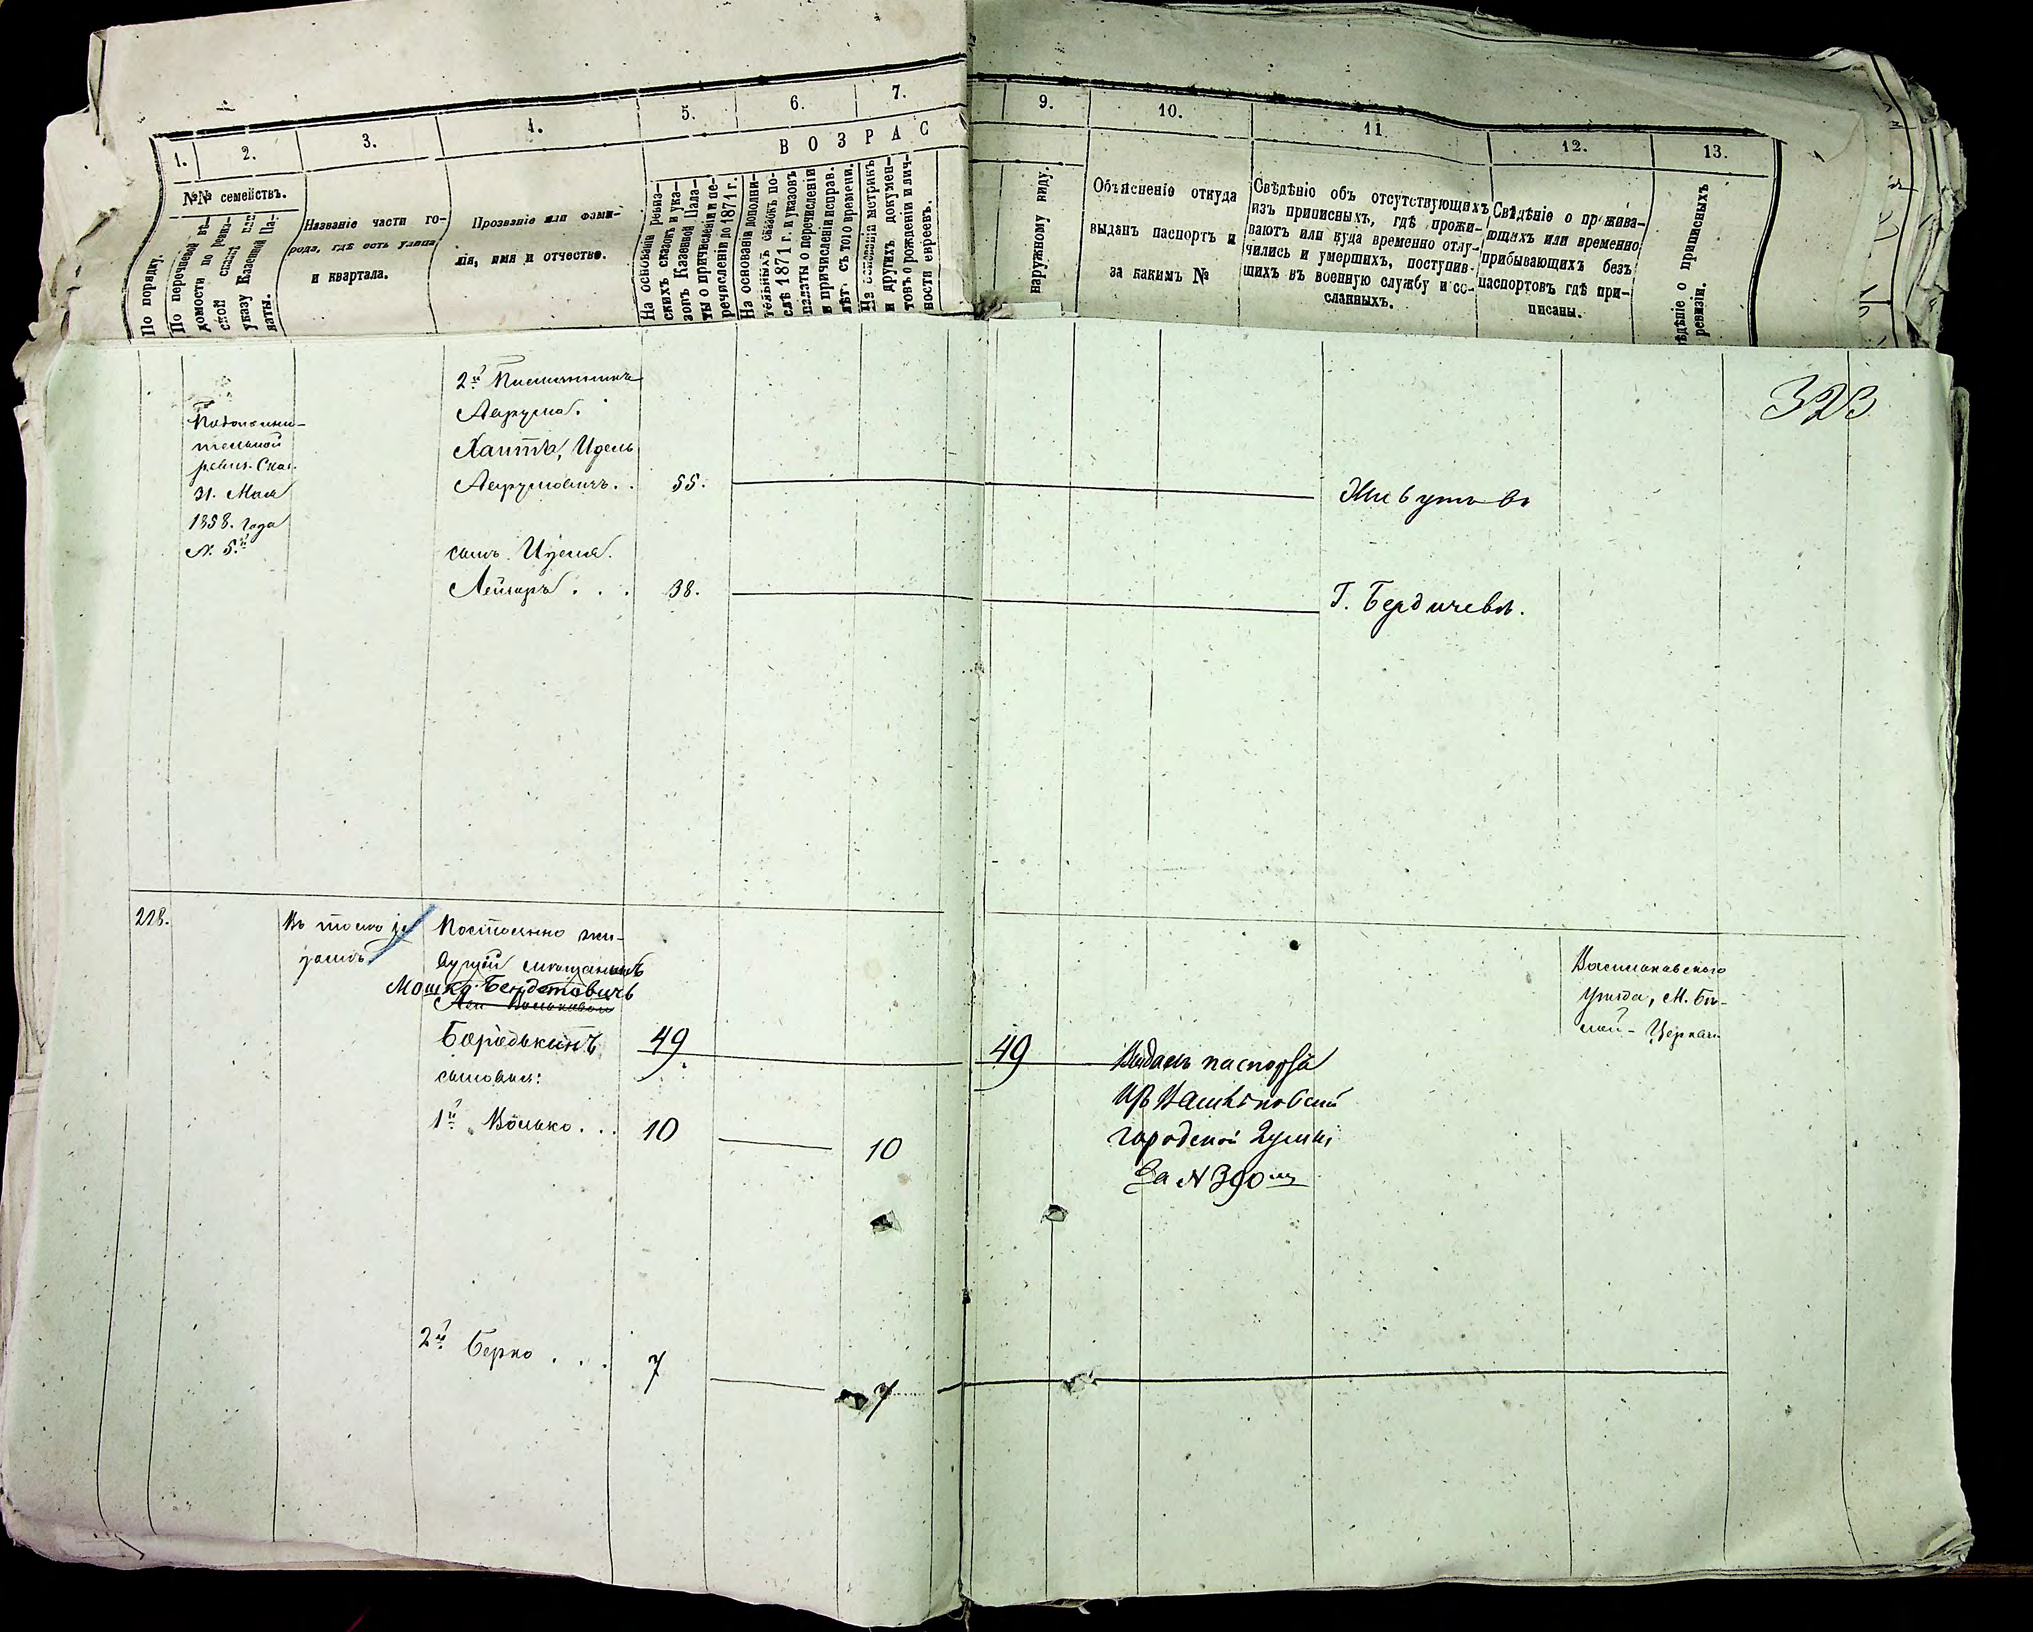 1.
2.
3.
4.
5.
6.
7.
9.
10.
11.
12.
13.
ВОЗРАС
№№ семействъ.
По порядку.
По перечневой вѣ-
домости по ревиз-
ской сказкѣ или
указу Казеной Па-
латы.
Названіе части го-
рода, гдѣ есть улица
и квартала.
Прозваніе или фами-
лія, имя и отчество.
На основаніи ревиз-
скихъ сказокъ и ука-
зовъ Казенной Пала-
ты о причисленіи и пе-
речисленіи до 1874 г.
На основаніи дополни-
тельныхъ сказокъ по-
слѣ 1874 г. и указовъ
палаты о перечисленіи
и причисленіи исправ.
лѣтъ съ того времени.
На основаніи метрикъ
и другихъ докумен-
товъ о рожденіи и лич-
ности евреевъ.
наружному виду.
Объясненіе откуда
выданъ паспортъ и
за какимъ №
Свѣдѣніе объ отсутствующихъ
изъ приписныхъ, гдѣ прожи-
ваютъ или куда временно отлу-
чились и умершихъ, поступив-
шихъ въ военную службу и со-
сланныхъ.
Свѣдѣніе о прожива-
ющихъ или временно
прибывающихъ безъ
паспортовъ гдѣ при-
писаны.
ѣдѣніе о приписныхъ
ревизіи.
323
По дополни-
тельной
ревиз. Сказ.
31. Мая
1858. года
№ 5.й
2й Племянникъ
Аврума.
Идель
Аврумовичъ. . 55.
сынъ Иделя.
Лейзоръ . . . 38.
Г. Бердичевѣ.
218.
Въ томъ же
домѣ
Постоянно жи-
вущій мѣщанинъ
Мошко Бендетовичъ
Бородькинъ 49 49
сыновья:
1й Волько. . . 10 10
2й Берко . . . 7 7
Выданъ паспортъ
изъ Васильковской
городской Думы
За № 390мъ
Васильковскаго
Уѣзда, М. Бѣ-
лой-Церкви